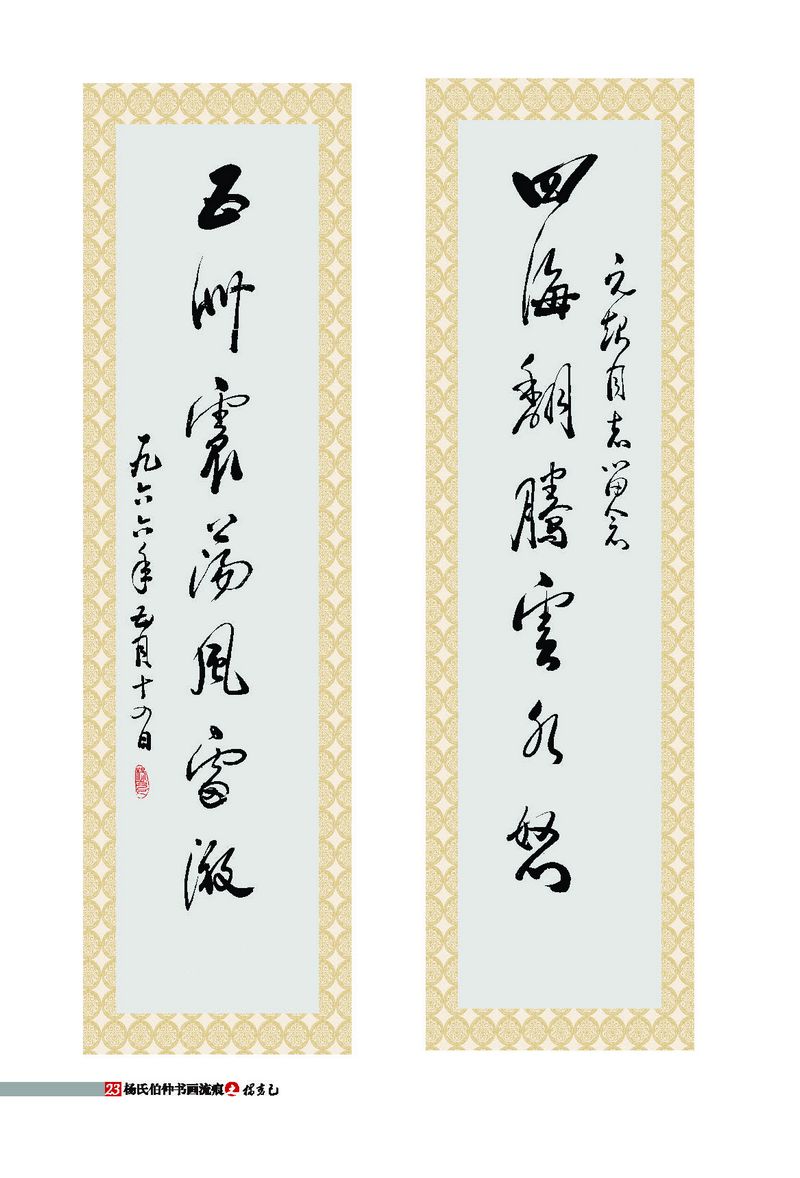 元超同志留念
四海翻腾雲水怒
五洲震荡風雷激
一九六六年五月十八日
23 杨氏伯仲书画流痕之